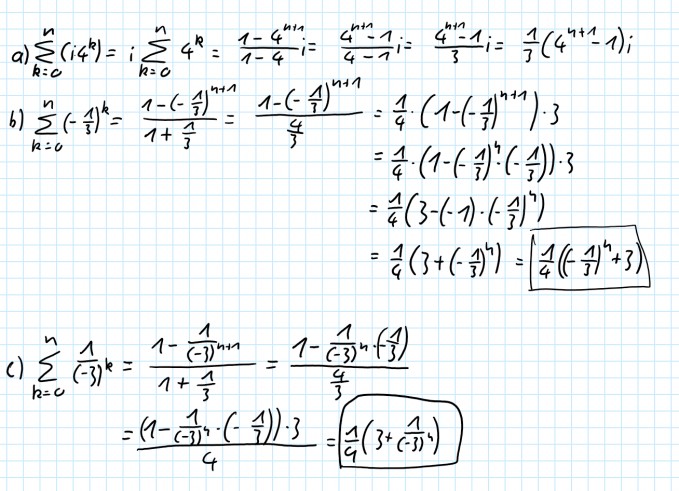 a) ∑_{k=0}^{n} (i4^k) = i ∑_{k=0}^{n} 4^k = \frac{1-4^{n+1}}{1-4} i = \frac{4^{n+1}-1}{4-1} i = \frac{4^{n+1}-1}{3} i = \frac{1}{3}(4^{n+1}-1)i
b) ∑_{k=0}^{n} (-\frac{1}{3})^k = \frac{1-(-\frac{1}{3})^{n+1}}{1+\frac{1}{3}} = \frac{1-(-\frac{1}{3})^{n+1}}{\frac{4}{3}} = \frac{1}{4}·(1-(-\frac{1}{3})^{n+1})·3
= \frac{1}{4}·(1-(-\frac{1}{3})^n·(-\frac{1}{3}))·3
= \frac{1}{4}(3-(-1)·(-\frac{1}{3})^n)
= \frac{1}{4}(3+(-\frac{1}{3})^n) = \frac{1}{4}((-\frac{1}{3})^n+3)
c) ∑_{k=0}^{n} \frac{1}{(-3)^k} = \frac{1-\frac{1}{(-3)^{n+1}}}{1+\frac{1}{3}} = \frac{1-\frac{1}{(-3)^n}·(-\frac{1}{3})}{\frac{4}{3}}
= \frac{(1-\frac{1}{(-3)^n}·(-\frac{1}{3}))·3}{4} = \frac{1}{4}(3+\frac{1}{(-3)^n})